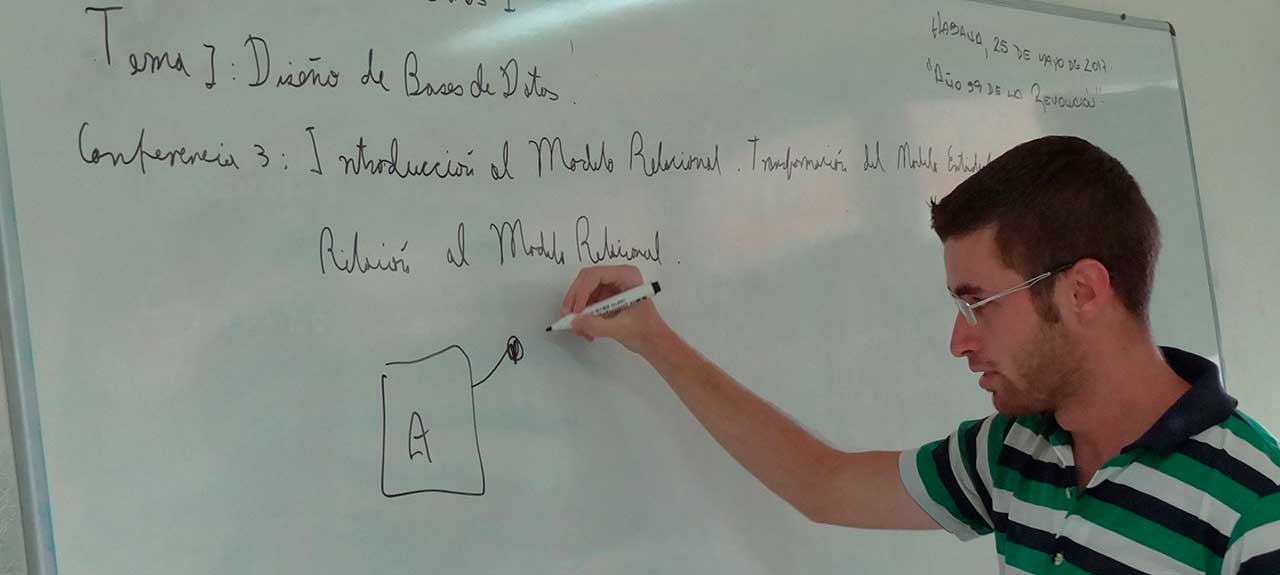 Tema I: Diseño de Bases de Datos.
Habana, 25 de mayo de 2017
"Año 59 de la Revolución"
Conferencia 3: Introducción al Modelo Relacional. Transformación del Modelo Entidad
Relación al Modelo Relacional.
A